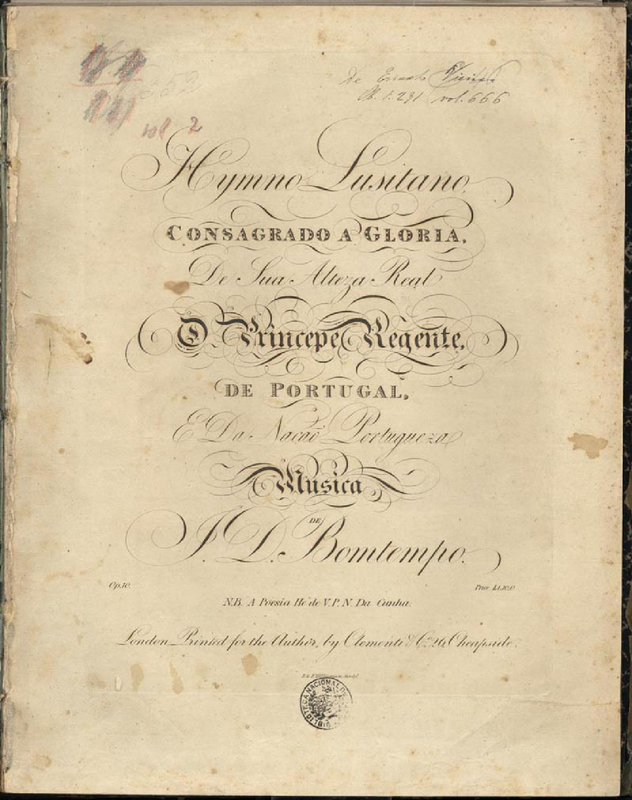 vol. 2
De Ernesto Vieira
M. I. 231 vol. 666
Hymno Lusitano,
CONSAGRADO A GLORIA,
De Sua Alteza Real
O. Princepe Regente,
DE PORTUGAL,
E Da Nacaõ Portugueza,
Musica
DE
J. D. Bomtempo.
Op. 10.
Price
N.B. A Poesia He' de V. P. N. Da Cunha.
London, Printed for the Author, by Clementi & Co. 26, Cheapside.
BIBLIOTECA NACIONAL